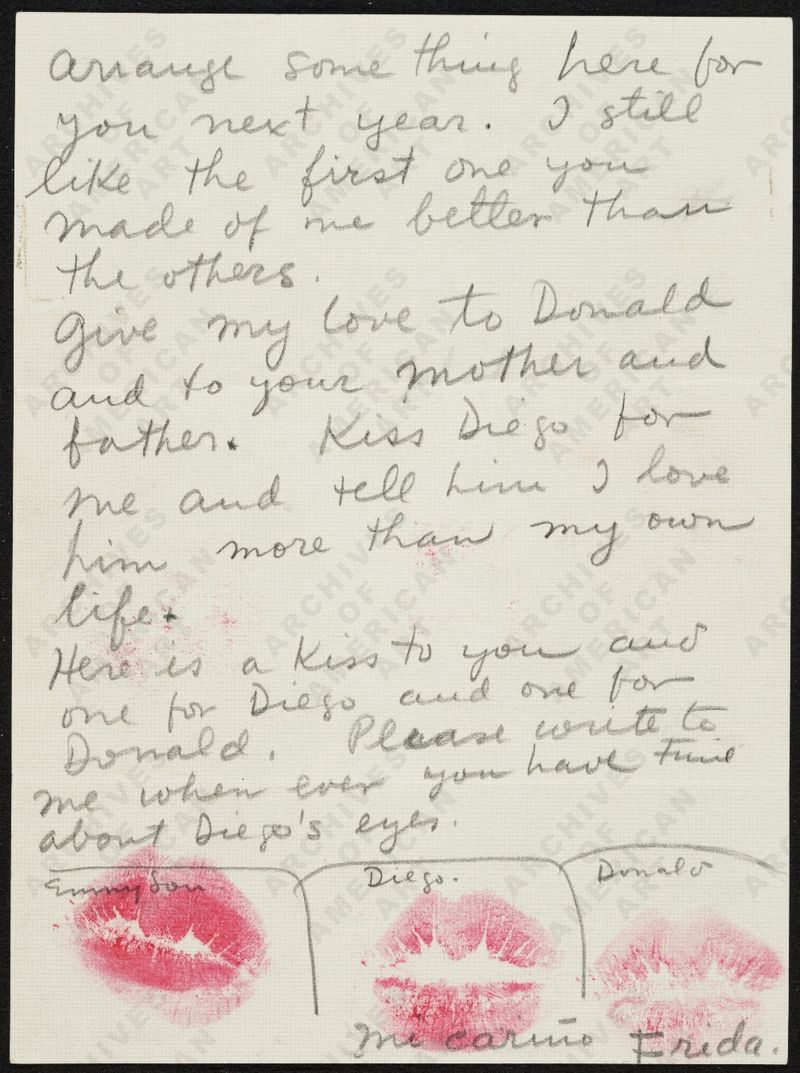 arrange some thing here for
you next year. I still
like the first one you
made of me better than
the others.
Give my love to Donald
and to your mother and
father. Kiss Diego for
me and tell him I love
him more than my own
life.
Here is a Kiss to you and
one for Diego and one for
Donald. Please write to
me when ever you have time
about Diego's eyes.
Emmy Lou
Diego.
Donald
Mi cariño Frida.
ARCHIVES
OF
AMERICAN
ART